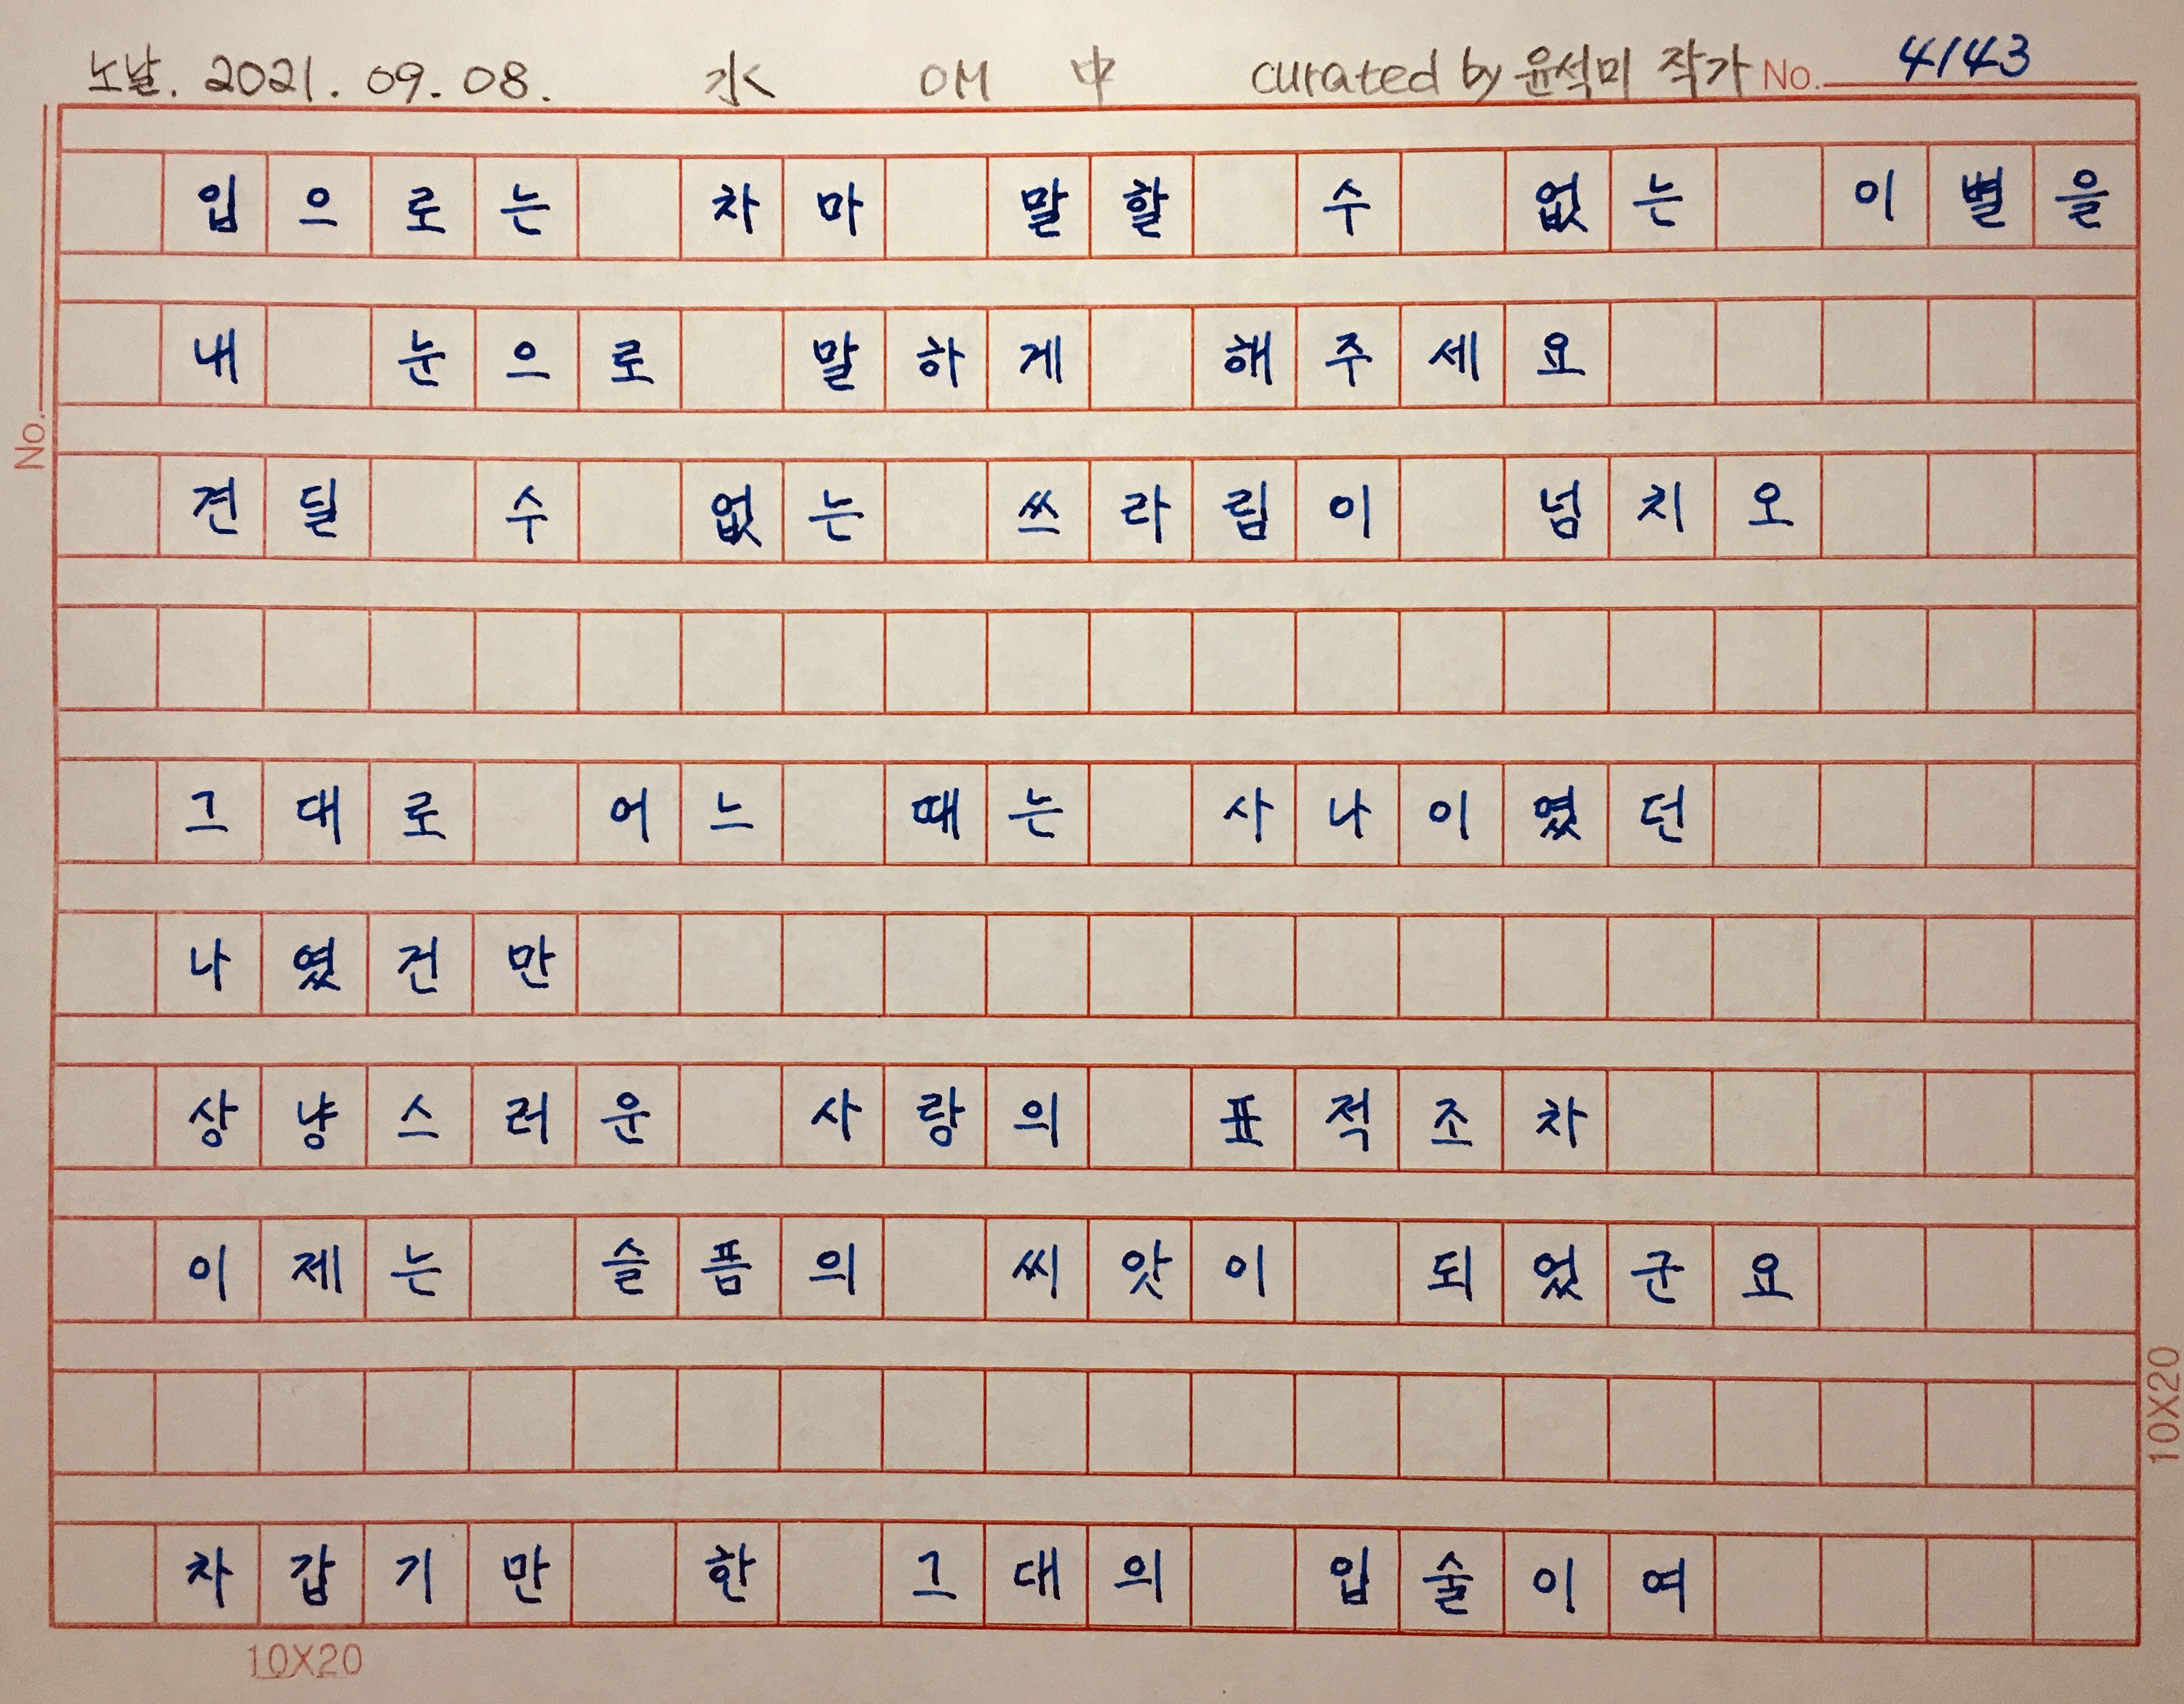 노날. 2021. 09. 08. 水 OM 中 curated by 윤석미 작가 No. 4143
입으로는 차마 말할 수 없는 이별을
내 눈으로 말하게 해주세요
No.
견딜 수 없는 쓰라림이 넘치오
그대로 어느 때는 사나이였던
나였건만
상냥스러운 사랑의 표적조차
이제는 슬픔의 씨앗이 되었군요
10X20
차갑기만 한 그대의 입술이여
10X20